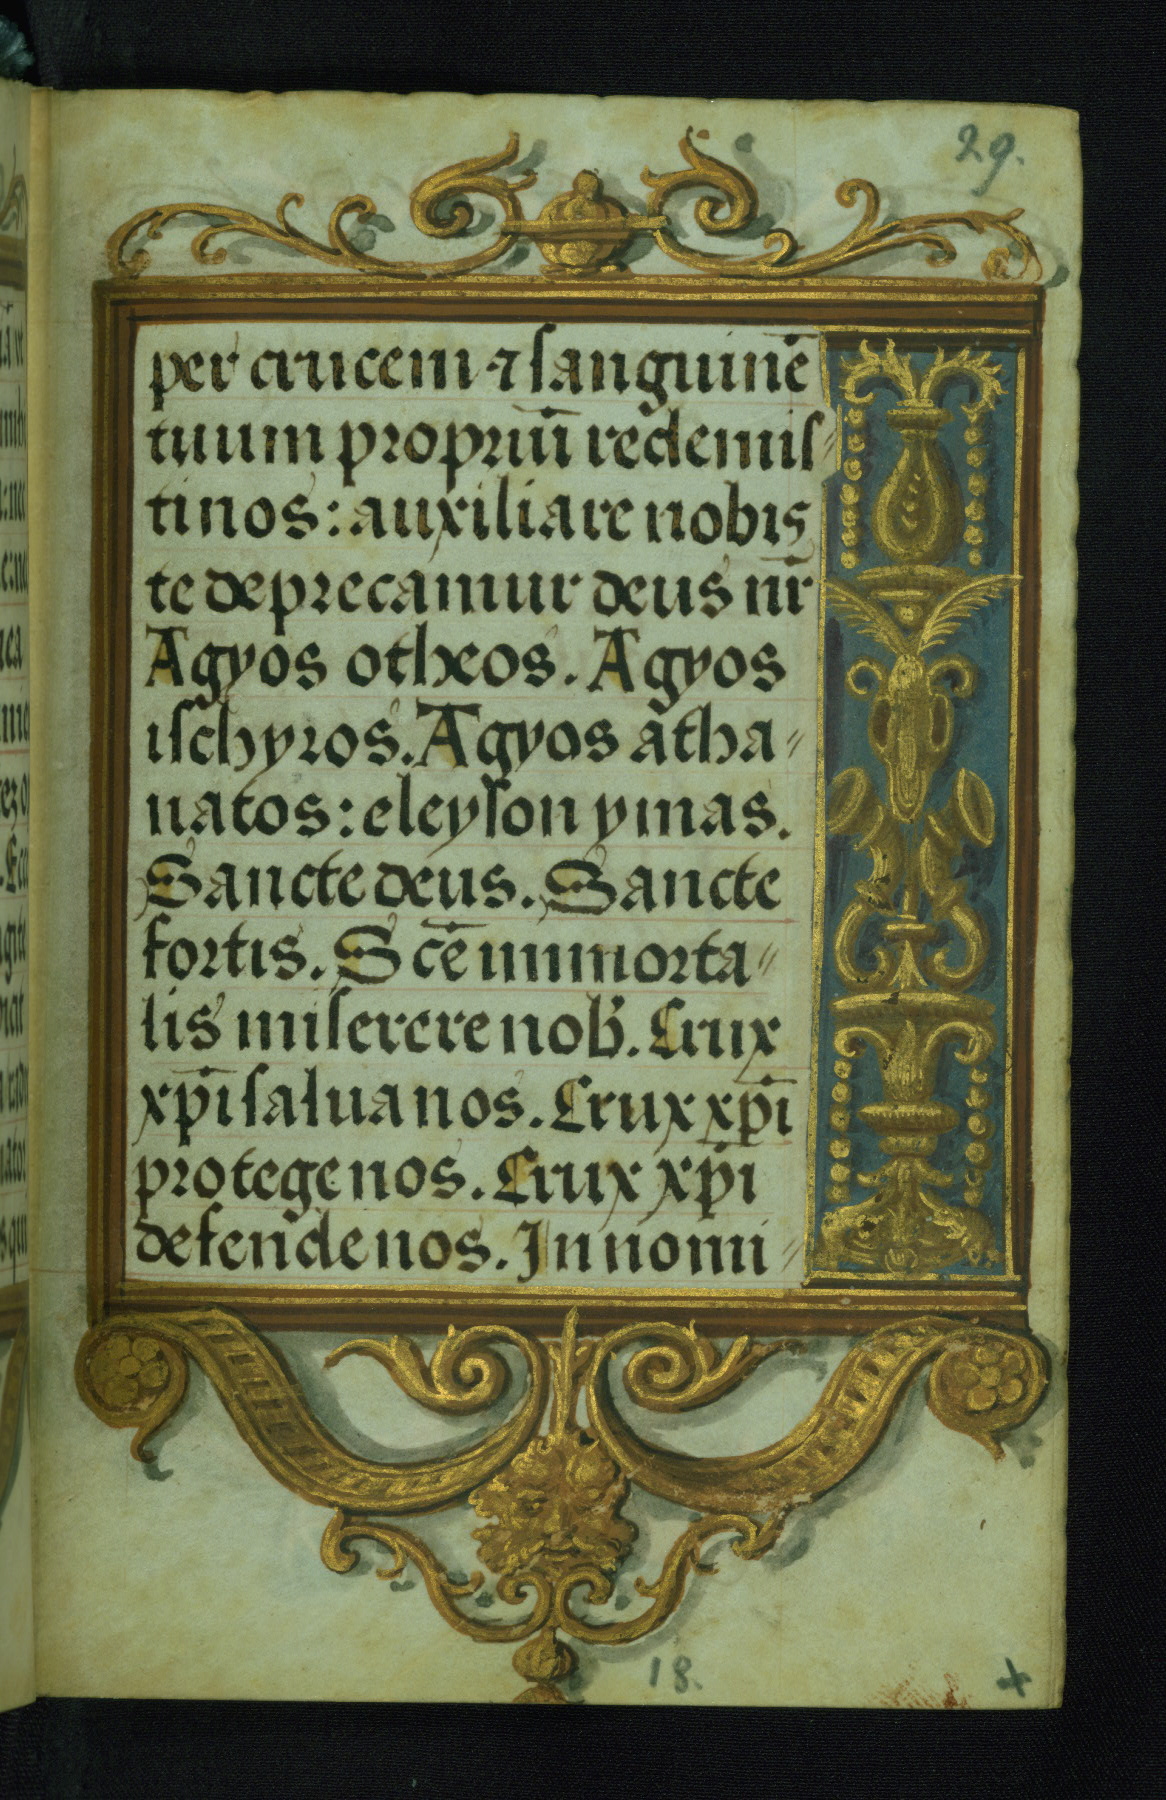 29.
per crucem ⁊ ſanguinē
tuum propriū redemiſ〃
tinos: auxiliare nobis
te deprecamur deus nr̄
Agyos otheos. Agyos
iſchyros. Agyos atha〃
natos: eleyſon ymas.
Sancte deus. Sancte
fortis. Sc̄e immorta〃
lis miſerere nob̾. Crux
xp̄i ſalua nos. Crux xp̄i
protege nos. Crux xp̄i
defende nos. In nomi〃
18.
+